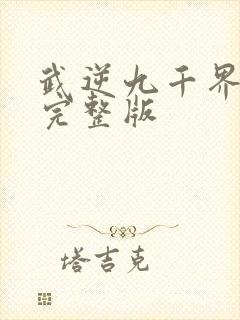 武逆九千界
完整版
塔吉克